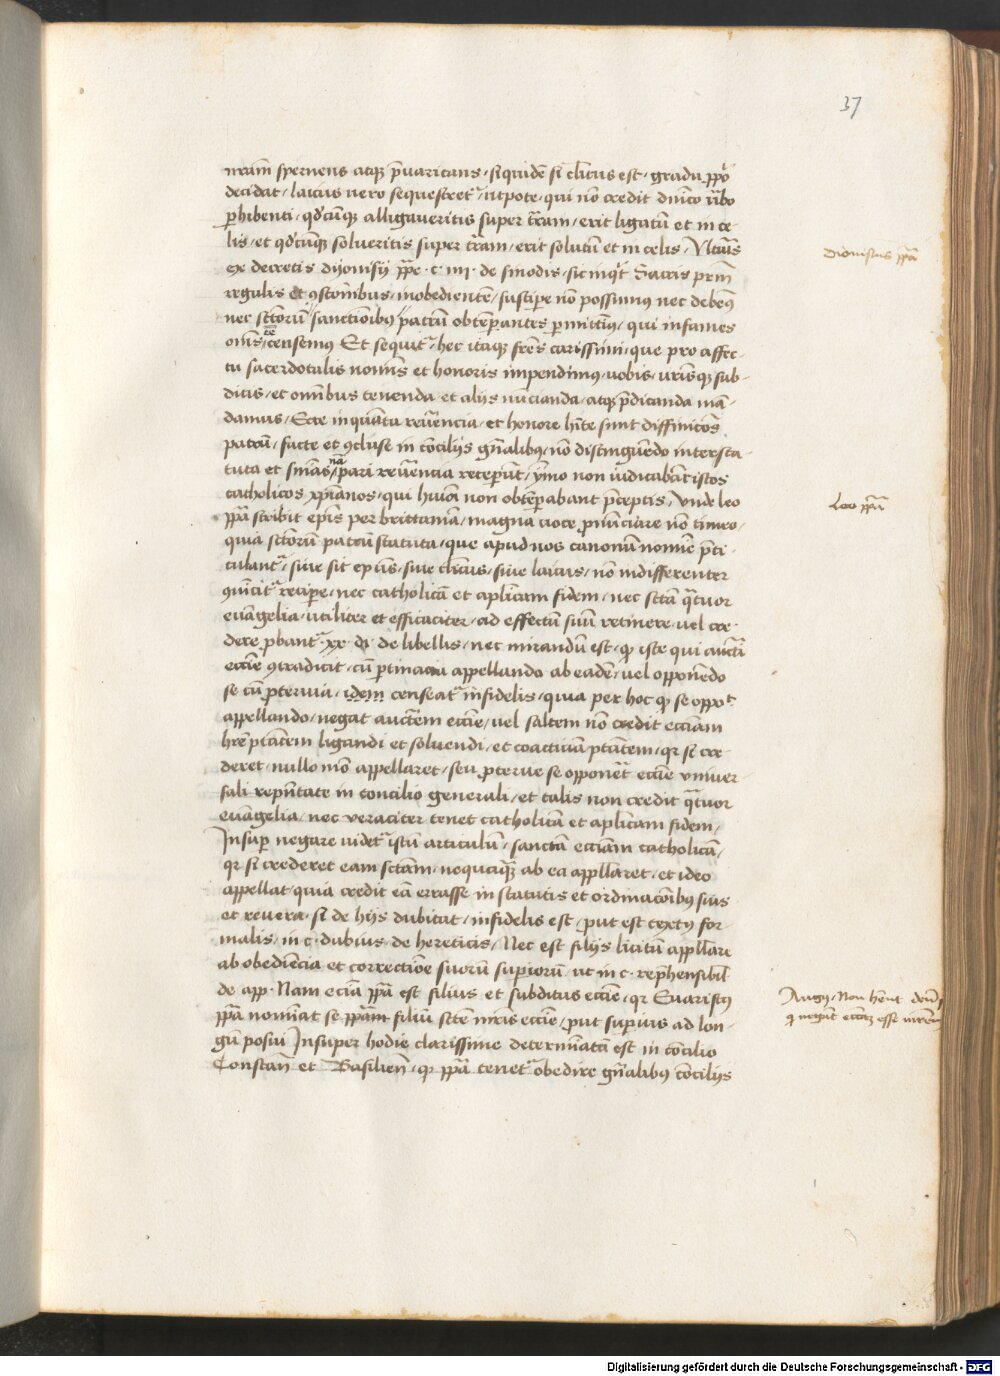 37
nrãm spernens atqȝ p̃uaricans · siquidē si clĩcus est · gradu ꝓpo
decidat / laicus vero sequestret² / utpote · qui nō credit dnĩco ũbo
ꝑhibenti / qđcũqȝ alligaueritis super terram / erit ligatũ et in ce-
lis / et qđcũqȝ solueritis super terram / erit solutũ et in celis /
ex decretis dijonisij pp̃e · c · iiij · de sinodis / sic inqt̃ Sacris
regulis et ꝯstõnibus / inobedientē / suscipe nō possimus nec debemꝰ
nec sctõrũ / sanctiõibus / patrũ obtēꝑantes ꝑmittimꝰ / qui infames
censemus Et sequit² / hec itaqȝ fr̃es carissimi / que pro affec-
tu sacerdotalis nomĩs et honoris impendimꝰ / vobis / vr̃isqȝ sub-
ditis / et omĩbus tenenda / et alijs nũcianda / atqȝ p̃dicanda mã-
damus / Ecce in quãta reũencia / et honore hĩte sunt diffinitões
patrũ / facte et ꝯcluse in cõcilijs gñalibꝰ / nō distinguēdo inter sta-
tuta et / pari reũencia receperũt / ymo non iudicabãt istos
catholicos xp̃ianos / qui huiõi non obtēꝑabant p̃ceptis / Vnde leo
pp̃a scribit ep̃is per brittaniã / magna voce ꝓnũciare nō timeo /
quia sctõrũ patrũ statuta / que apud nos canonũ nomĩe p̃ti-
tulant² / siue sit ep̃us / siue clĩcus / siue laicus / nō indifferenter
ꝯuĩcit² reciꝑe / nec catholicã et aplĩcam fidem / nec sctã qtuor
euãgelia / utiliter et efficaciter / ad effectũ suũ retinere / vel cre-
dere ꝓbant² · xx · di · de libellis / nec mirandũ est / ꝙ iste qui auctĩ
ecc̃ie ꝯtradicit / cũ ꝑtinacia appellando ab eadē / vel opponēdo
se cũ ꝓteruia / idem censeat² infidelis / quia per hoc ꝙ se
appellando / negat auctẽm ecc̃ie / vel saltem nō credit ecc̃iam
hr̃e ptãtem ligandi et soluendi / et coactiuã ptãtem / qr si cre-
deret / nullo mō appellaret / seu ꝓterue se opponēt ecc̃ie vniuer-
sali repñtate in concilio generali / et talis non credit qtuor
euãgelia / nec veraciter tenet catholicã et aplĩcam fidem /
Insuꝑ negare uidet² istũ articulũ / sanctã ecc̃iam catholicã /
qr si crederet eam sctãm / nequaqȝ ab ea applĩaret / et ideo
appellat / quia credit eã errasse in statutis et ordinacõibus suis
et reuera / si de hijs dubitat / infidelis est / ꝓut est textus for-
malis / in c · dubius / de hereticis / Nec est filijs licitũ applĩare
ab obediẽcia et correctiõe suorũ suꝑiorũ / ut in c · rep̃hensibil̃
de app · Nam eciã pp̃a est filius et subditus ecc̃ie / qr Euaristꝰ
pp̃a nomĩat se pp̃am filiũ scẽ mr̃is ecc̃ie / ꝓut suꝑius ad lon-
gũ posui Insuper hodie clarissime determĩatũ est in cõcilio
Constañ et Basilieñ / ꝙ pp̃a tenet² obedire gñalibꝰ cõcilijs
Dionisius pp̃a
Leo pp̃a
Augꝰ / Non hẽnt
Digitalisierung gefördert durch die Deutsche Forschungsgemeinschaft - DFG